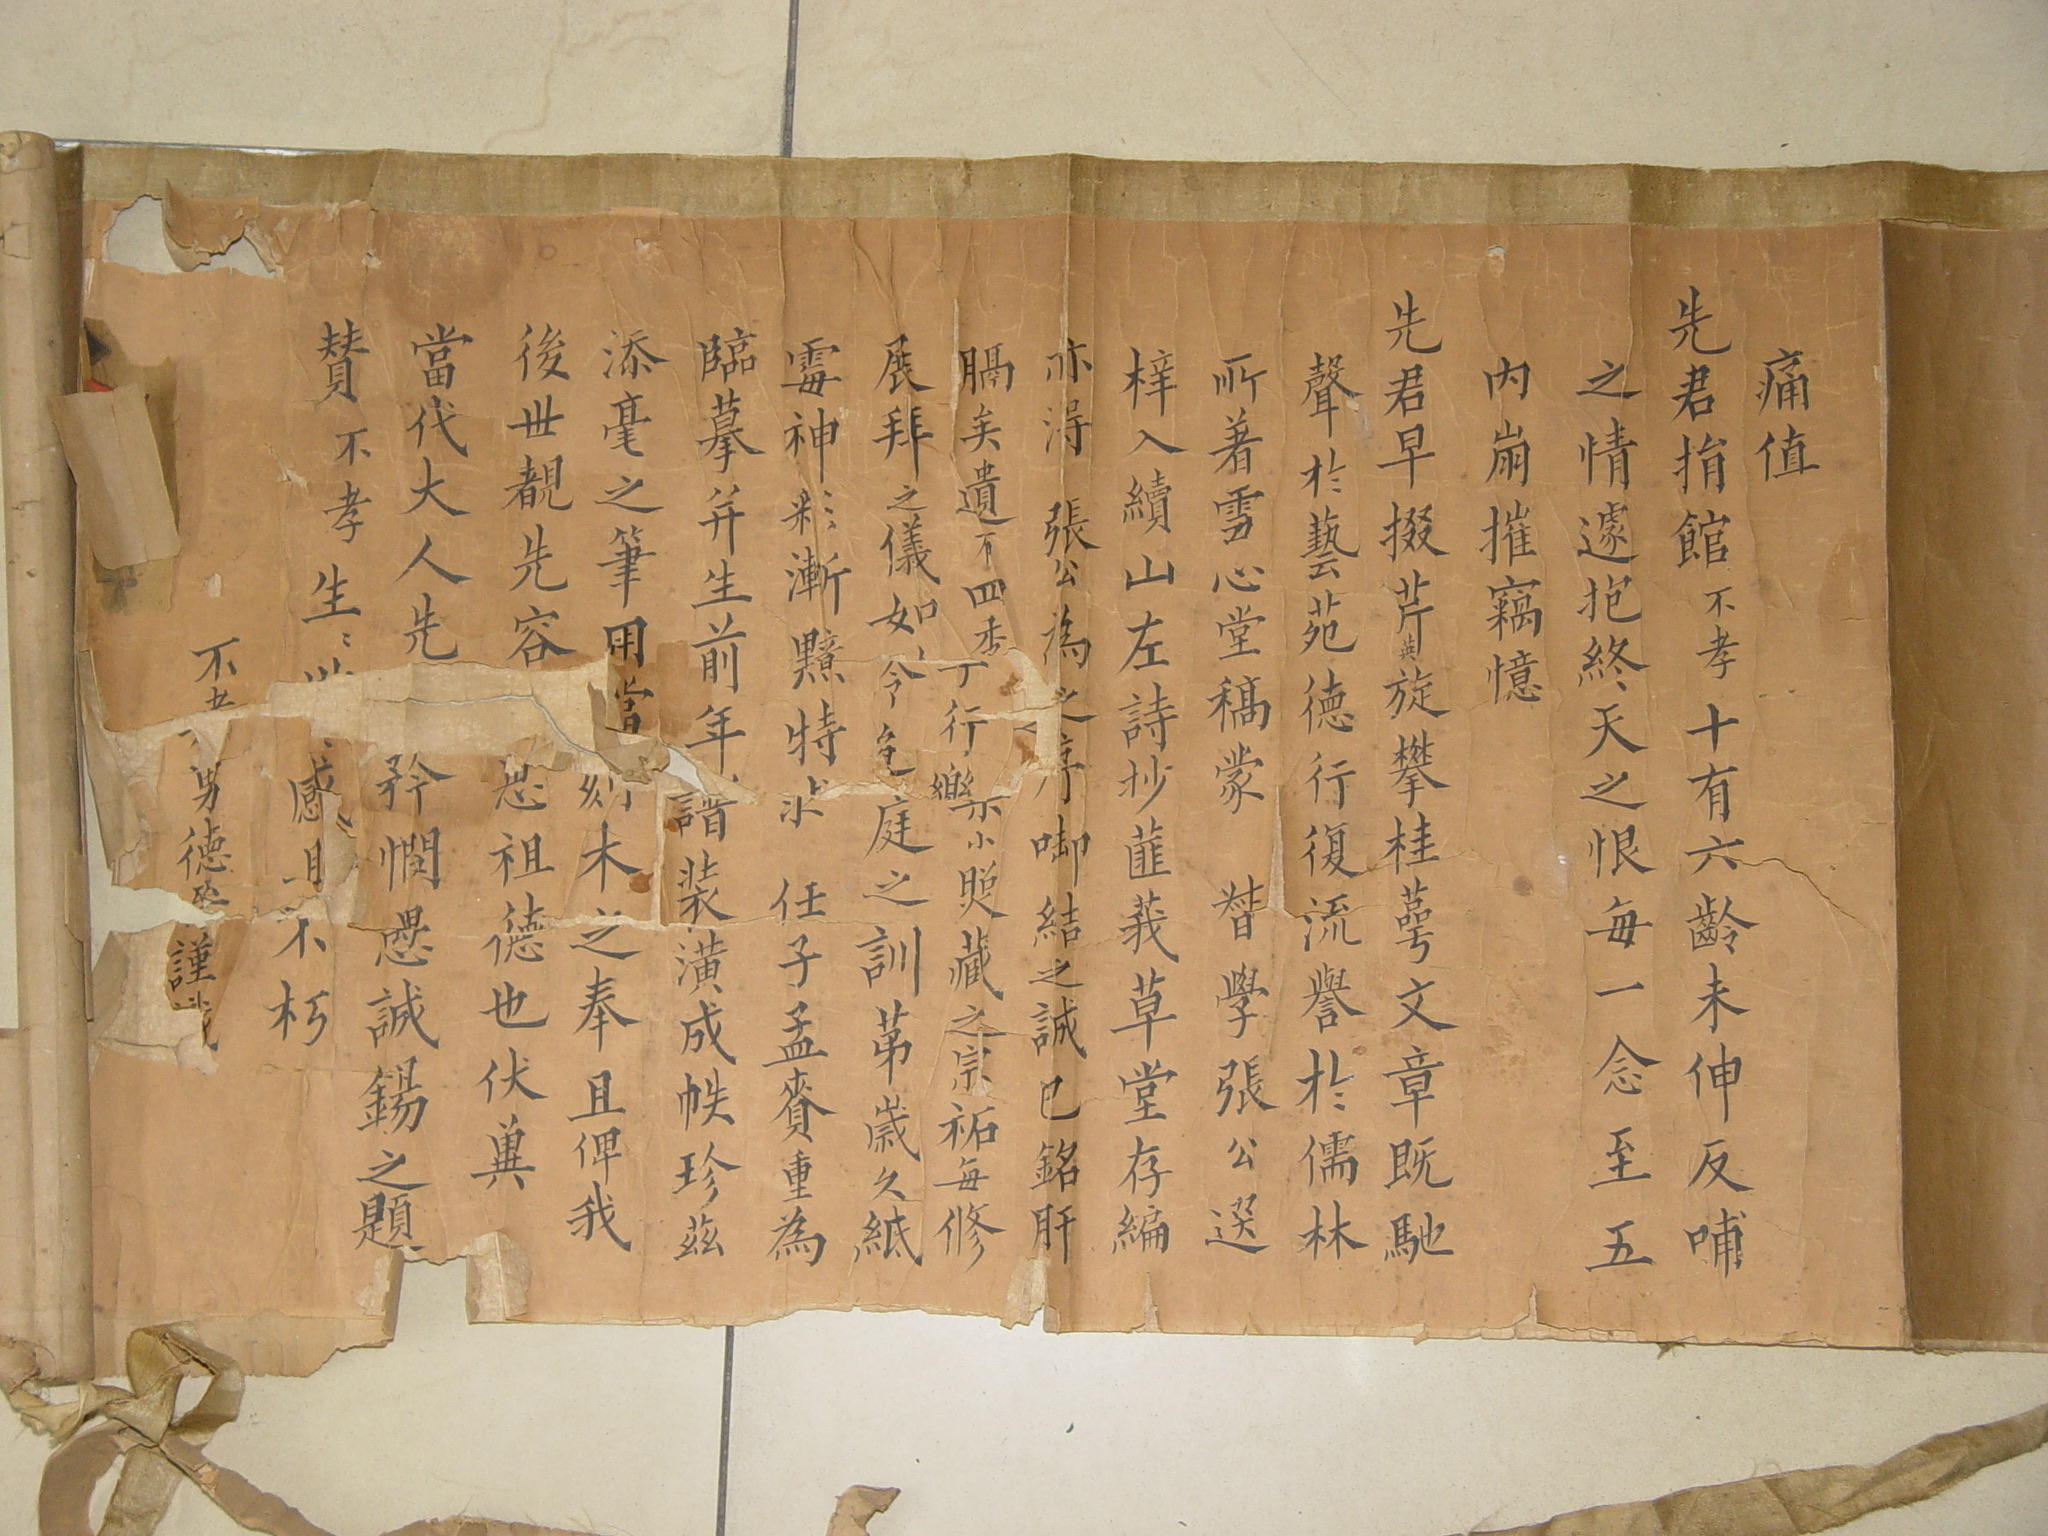 痛值
先君捐館不孝十有六齡未伸反哺
之情遽抱終天之恨每一念至五
内崩摧竊憶
先君早掇芹與旋攀桂萼文章既馳
聲於藝苑德行復流譽於儒林
所著雪心堂稿蒙 督學張公選
梓入續山左詩抄蓲莪草堂存編
亦淂 張公為之序啣結之誠已銘肝
膈矣遺有四季行樂小照藏之宗祏每修
展拜之儀如令 庭之訓苐歲久紙
霉神彩漸黯特求 任子孟賡重為
臨摹并生前年譜装潢成帙珍兹
添毫之筆用當刻木之奉且俾我
後世覩先容 祖德也伏兾
當代大人先 矜憫愚誠錫之題
賛不孝生 感且不朽
不 男德 謹